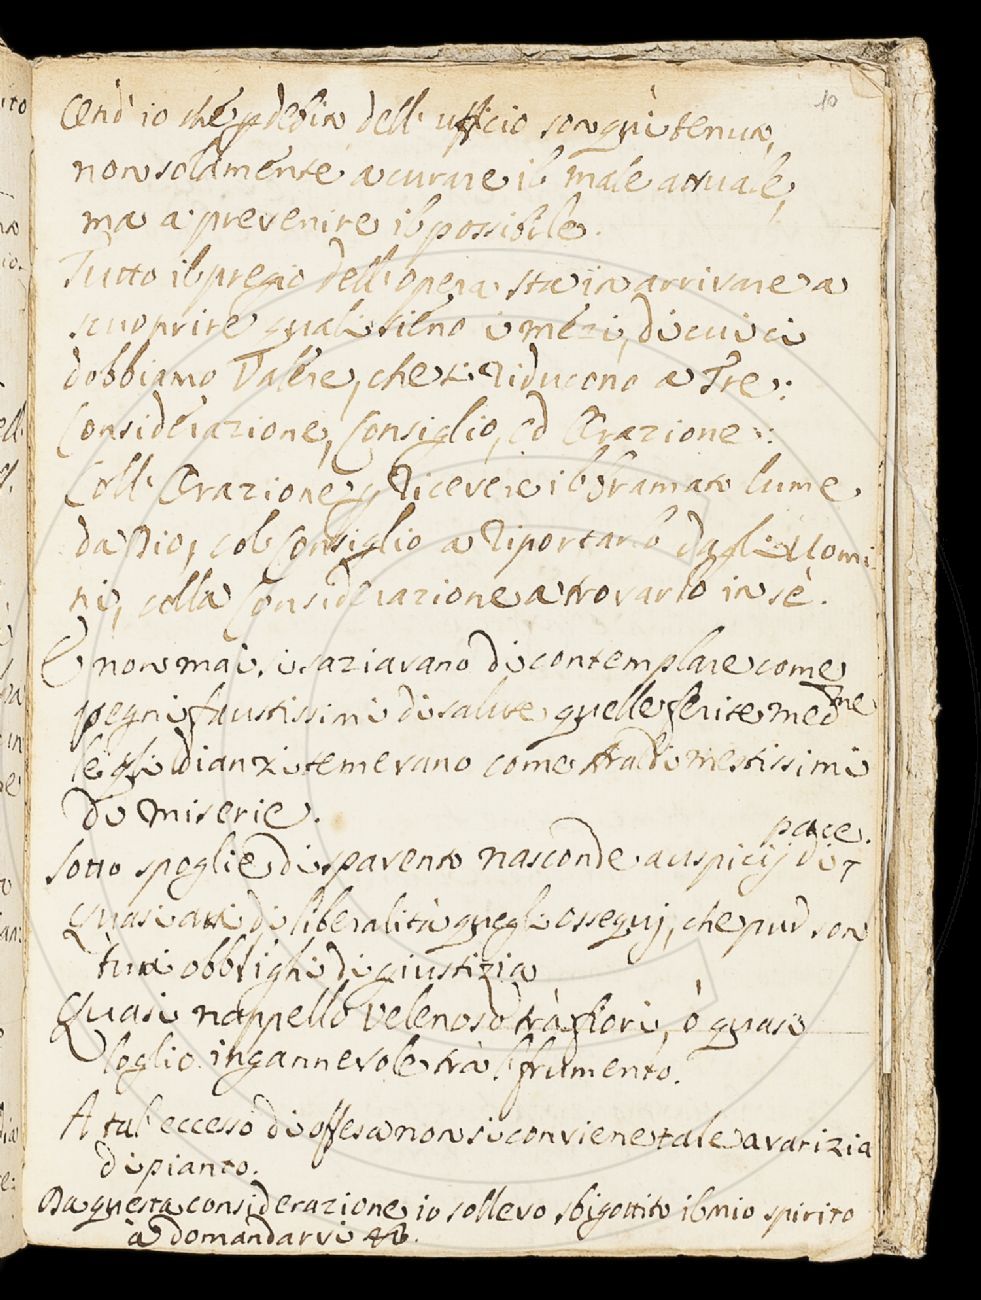 10
Cend' io che p debito dell' ufficio son qui tenuta,
non solamente a curare il male attuale,
ma a prevenire il possibile.
Tutto il pregio dell' opera sta in arrivare a
scuoprire quali sieno i mezi, di cui ci
dobbiamo Valere, che si Riducono a Tre:
Considerazione, Consiglio, ed Orazione:
Coll' Orazione a Ricevere il bramato lume
da Dio, col Consiglio a Riportarlo dagli Uomi
ni, colla Considerazione a trovarlo in sè.
E non mai si saziavano di contemplare come
pegni faustissimi di salute quelle ferite med.me
le qli dianzi temevano come Araldi mestissimi
di miserie.
pace.
Sotto spoglie di spavento nasconde auspicij di
Quasi atti di liberalità quegli ossequij, che pud son
tutti obblighi di giustizia
Quasi nappello velenoso trà fiori, ò quasi
loglio ingannevole trà 'l frumento.
A tal' eccesso di offesa non si conviene tale avarizia
di pianto.
Da questa considerazione io sollevo sbigottito il mio spirito
à domandarvi